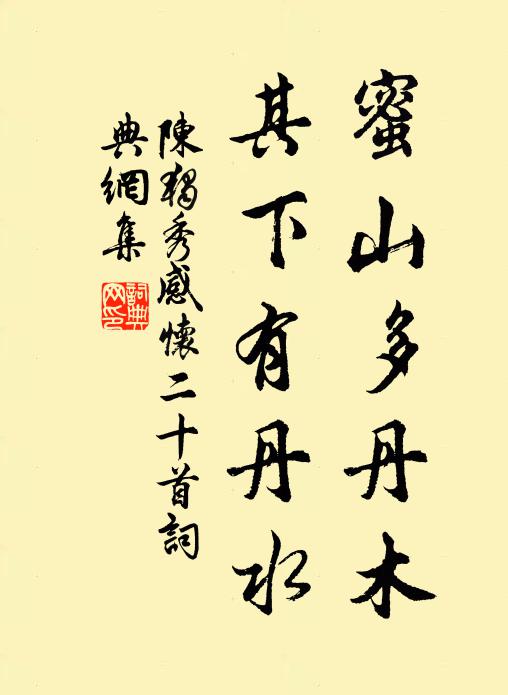 蜜山多丹木
其下有丹水
陳獨秀感懷二十首詞
典網集
詞典
网印